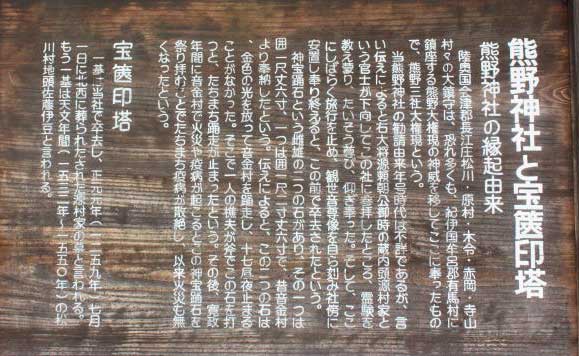 熊野神社と宝篋印塔
熊野神社の縁起由来
陸奥国会津郡長江庄松川・原村・木令・赤岡・寺山
村々の大鎮守は、恐れ多くも、紀伊国牟呂郡有馬村に
鎮座する熊野大権現の神威を移してここに奉ったもの
で、熊野三社大権現という。
当熊野神社の勧請は来年号時代は不詳であるが、言
い伝えによると右大将源頼朝公御時の蔵内頭源村家と
いう官士が下向してこの社に参拝したところ、霊験を
教え蒙り、たいそう尊び、仰ぎ奉った。そして、ここ
にしばらく旅行を止め、観世音尊像を自ら刻み社傍に
安置し奉り終えると、この前で卒去されたという。
神宝踊石という雌雄の二つの石があり、その一つは
囲一尺丈六寸、一つは囲一尺二寸丈六寸で、昔音金村
より奉納したという。伝えによると、この二つの石は
、金色の光を放って音金村を踊走し、十七昼夜止まる
ことがなかった。そこで一人の樵夫が斧でこの石を打
つと、たちまち踊走が止まったという。その後、寛政
年間に音金村で火災や疫病が起こるとこの神宝踊石を
祭り拝むことでたちまち疫病が散絶し、以来火災も無
くなったという。
宝篋印塔
一基に当社で卒去し、正元元年（一二五九年）七月
一日に北沢に葬られた された源村家の墓と言われる。
もう一基は天文年間（一五三一年～一五五〇年）の松
川村地頭佐藤伊豆と言われる。